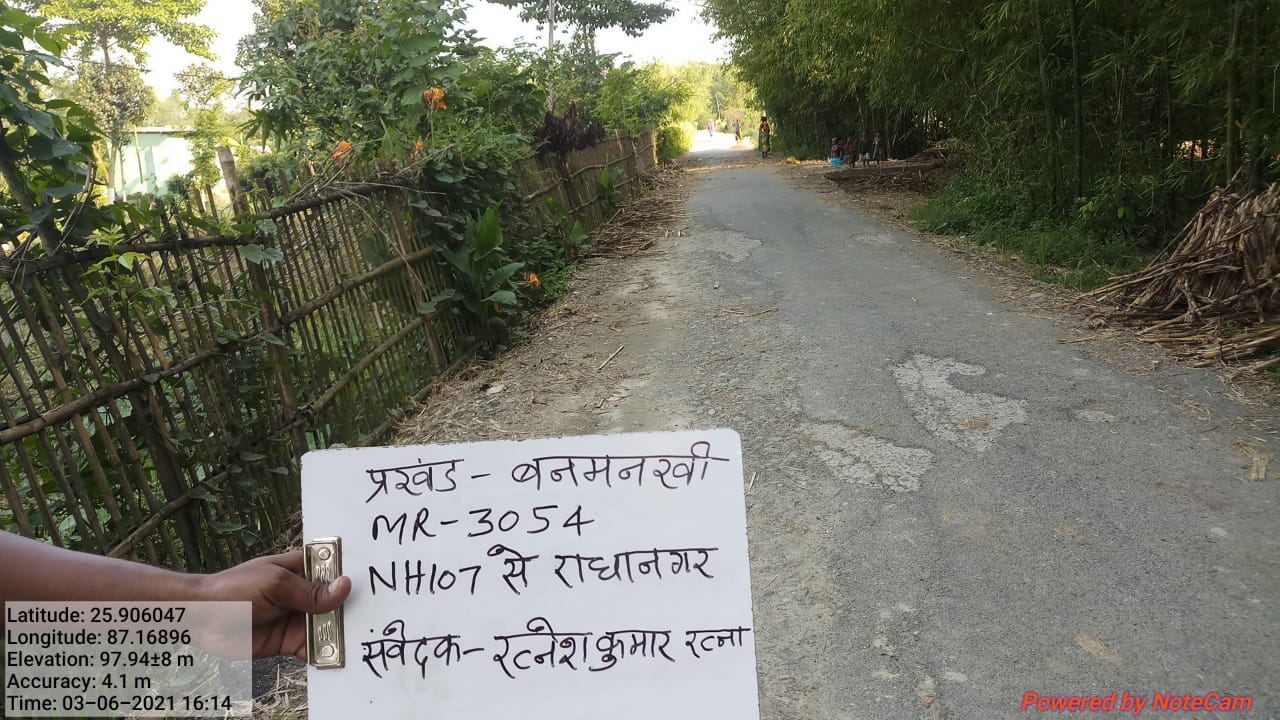 प्रखंड - बनमनखी
MR-3054
NH107 से राधानगर
संवेदक- रत्नेश कुमार रत्ना
Latitude: 25.906047
Longitude: 87.16896
Elevation: 97.94±8 m
Accuracy: 4.1 m
Time: 03-06-2021 16:14
Powered by NoteCam